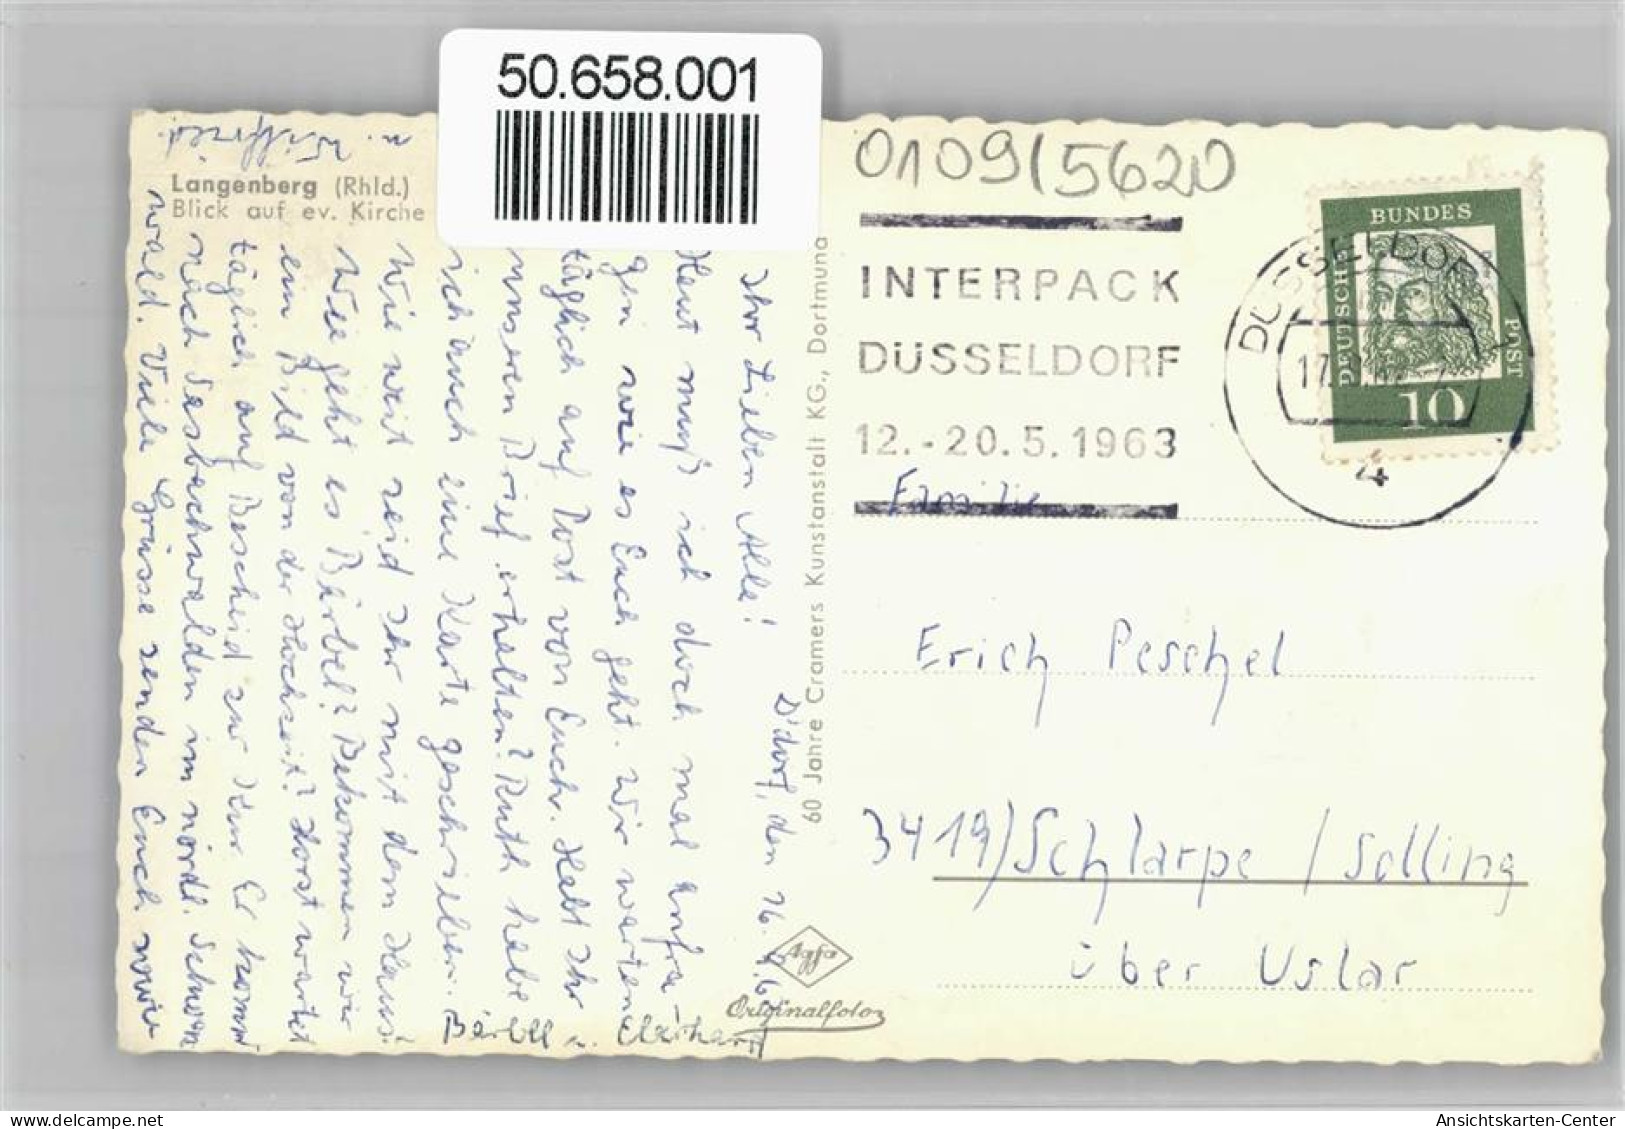 50.658.001
Langenberg (Rhld.)
Blick auf ev. Kirche
D'dorf, den 16.4.6
Ihr Lieben Alle!
Heut muß ich doch mal anfra-
gen wie es Euch geht. Wir warten
täglich auf Post von Euch. Habt Ihr
unseren Brief erhalten? Ruth habe
ich auch eine Karte geschrieben.
Wie weit seid Ihr mit dem Haus?
Wie geht es Bärbel? Bekommen wir
ein Bild von der Hochzeit? Horst wartet
täglich auf Bescheid zur Kur. Er kommt
nach Sasbachwalden im nördl. Schwarz
wald. Viele Grüsse senden Euch
u. Wilfried.
Bärbel u. Eberhard
60 Jahre Cramers Kunstanstalt KG., Dortmund
Agfa
Originalfoto
0109/5620
INTERPACK
DÜSSELDORF
12.-20.5.1963
DÜSSELDORF
17.
4
DEUTSCHE
BUNDES
POST
10
Familie
Erich Peschel
3419) Schlarpe / Solling
über Uslar
Ansichtskarten-Center